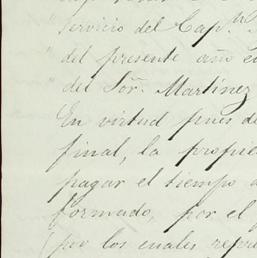 servicio del Cap.n
del presente año en
del Sor. Martinez
En virtud pues de
final, la propue
pagar el tiempo
formado, por el
por los cuales repre